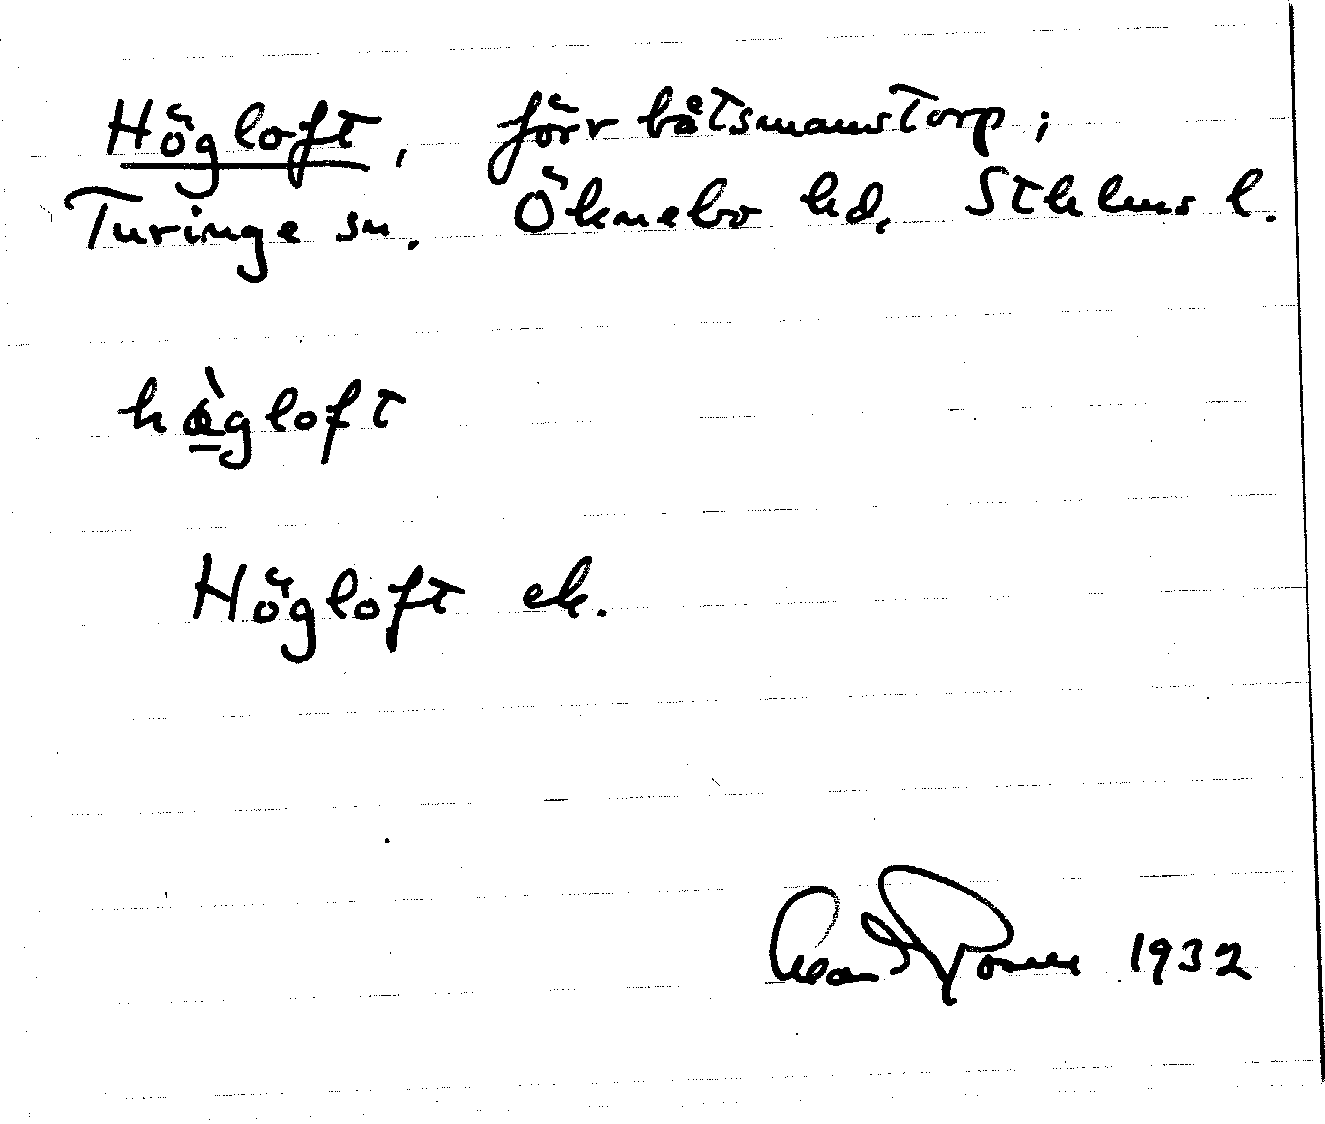 Högloft, förr båtsmanstorp;
Turinge sn. Öknebo hd, Sthlms l.
högloft
Högloft ek.
1932